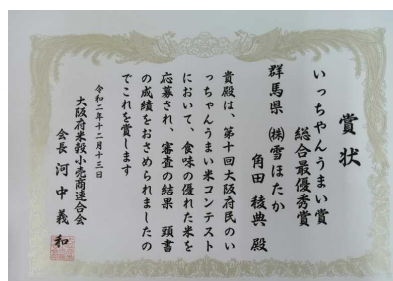 賞状
いっちゃんうまい賞
総合最優秀賞
群馬県 ㈱雪ほたか
角田 稜典 殿
貴殿は、第十回大阪府民のい
っちゃんうまい米コンテスト
において、食味の優れた米を
応募され、審査の結果 頭書
の成績をおさめられましたの
でこれを賞します
令和二年十二月十三日
大阪府米穀小売商連合会
会長 河中義和